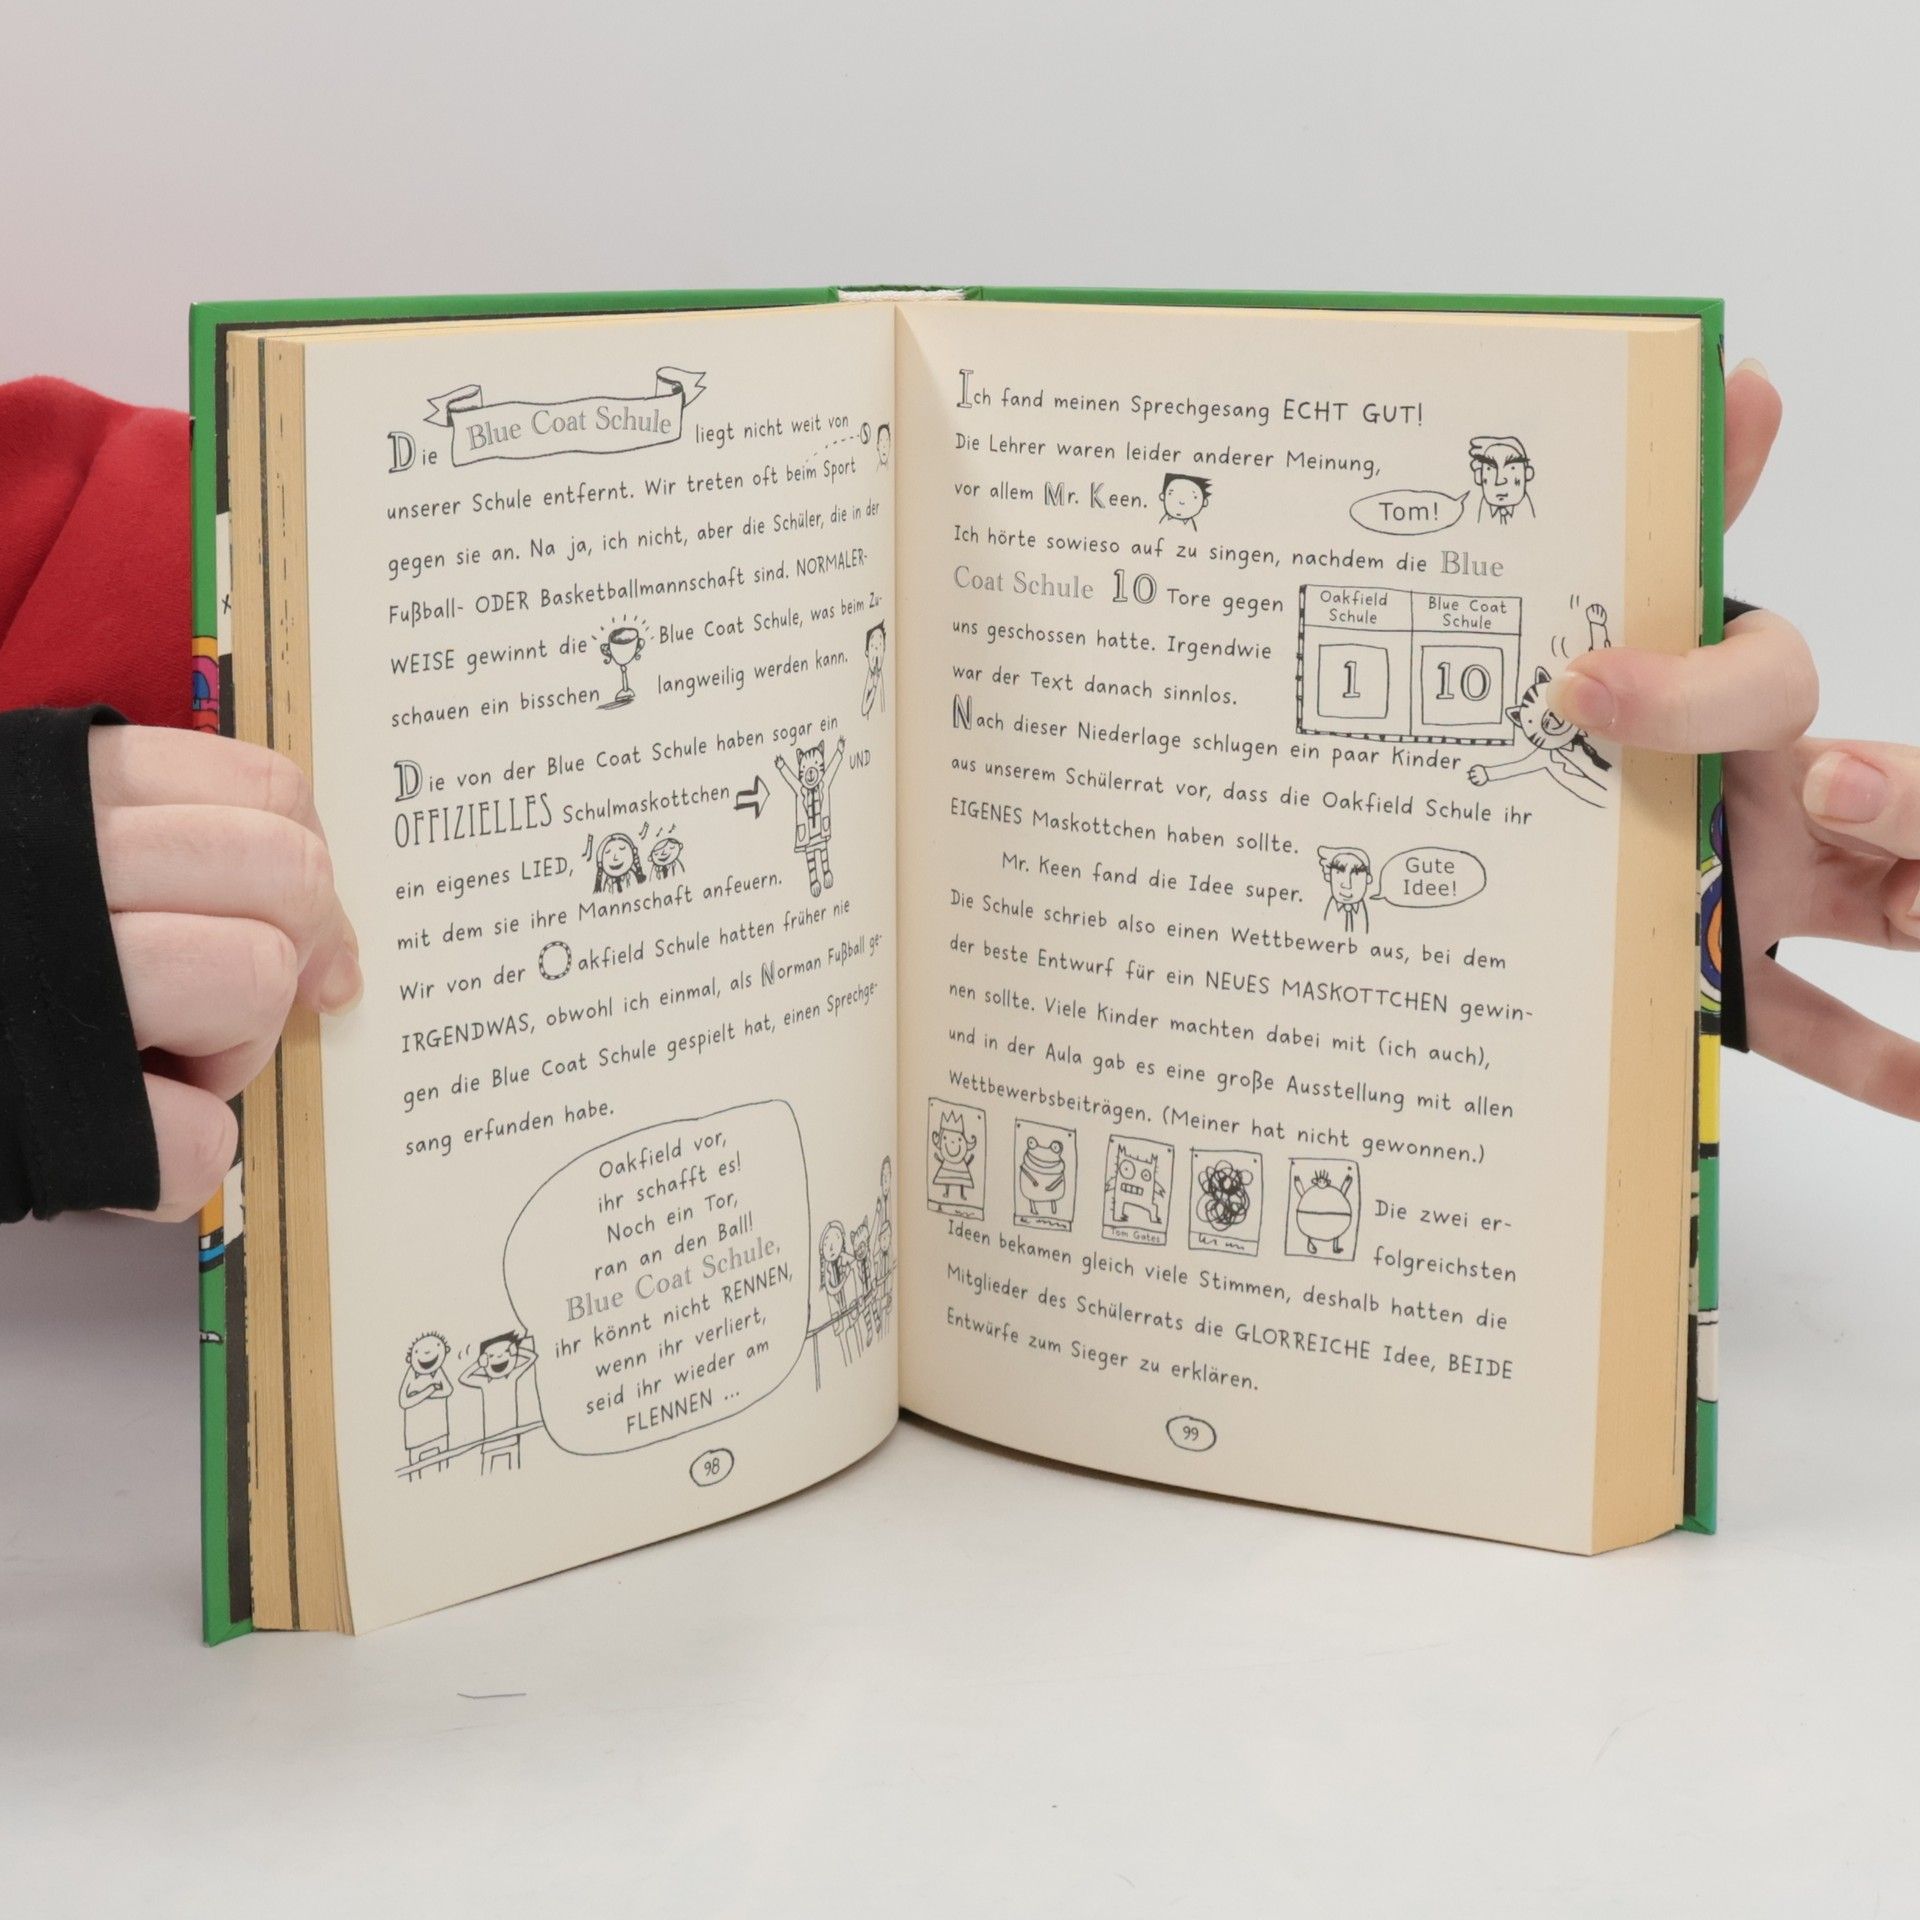 Die Blue Coat Schule liegt nicht weit von
unserer Schule entfernt. Wir treten oft beim Sport
gegen sie an. Na ja, ich nicht, aber die Schüler, die in der
Fußball- ODER Basketballmannschaft sind. NORMALER-
WEISE gewinnt die Blue Coat Schule, was beim Zu-
schauen ein bisschen langweilig werden kann.
Die von der Blue Coat Schule haben sogar ein
OFFIZIELLES Schulmaskottchen UND
ein eigenes LIED,
mit dem sie ihre Mannschaft anfeuern.
Wir von der Oakfield Schule hatten früher nie
IRGENDWAS, obwohl ich einmal, als Norman Fußball ge-
gen die Blue Coat Schule gespielt hat, einen Sprechge-
sang erfunden habe.
Oakfield vor,
ihr schafft es!
Noch ein Tor,
ran an den Ball!
Blue Coat Schule,
ihr könnt nicht RENNEN,
wenn ihr verliert,
seid ihr wieder am
FLENNEN ...
98
Ich fand meinen Sprechgesang ECHT GUT!
Die Lehrer waren leider anderer Meinung,
vor allem Mr. Keen.
Tom!
Ich hörte sowieso auf zu singen, nachdem die Blue
Coat Schule 10 Tore gegen
uns geschossen hatte. Irgendwie
war der Text danach sinnlos.
Oakfield Schule
Blue Coat Schule
1
10
Nach dieser Niederlage schlugen ein paar Kinder
aus unserem Schülerrat vor, dass die Oakfield Schule ihr
EIGENES Maskottchen haben sollte.
Mr. Keen fand die Idee super.
Gute
Idee!
Die Schule schrieb also einen Wettbewerb aus, bei dem
der beste Entwurf für ein NEUES MASKOTTCHEN gewin-
nen sollte. Viele Kinder machten dabei mit (ich auch),
und in der Aula gab es eine große Ausstellung mit allen
Wettbewerbsbeiträgen. (Meiner hat nicht gewonnen.)
Tom Gates
Die zwei er-
folgreichsten
Ideen bekamen gleich viele Stimmen, deshalb hatten die
Mitglieder des Schülerrats die GLORREICHE Idee, BEIDE
Entwürfe zum Sieger zu erklären.
99